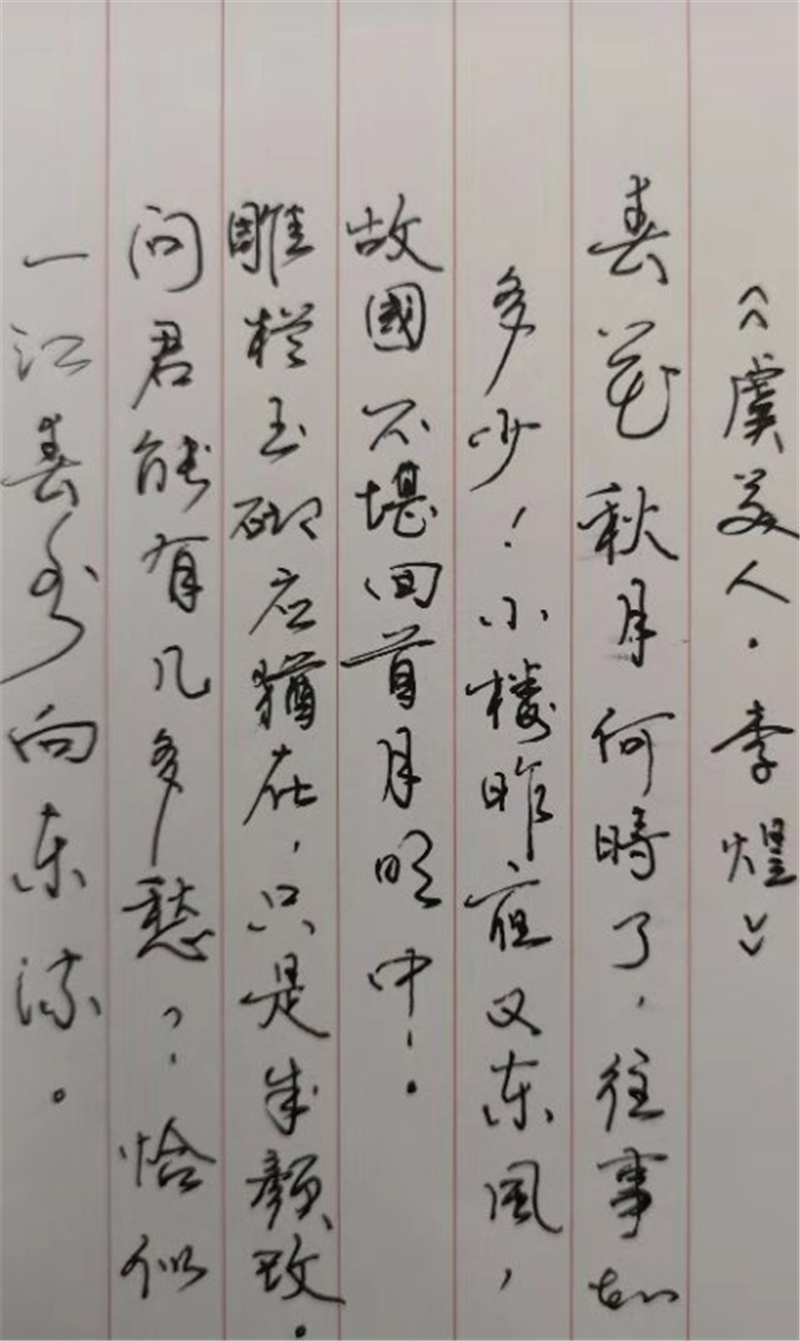 《虞美人·李煜》
春花秋月何時了,往事知
多少!小楼昨夜又东风,
故國不堪回首月明中!
雕栏玉砌应猶在,只是朱颜改。
问君能有几多愁?恰似
一江春水向东流。